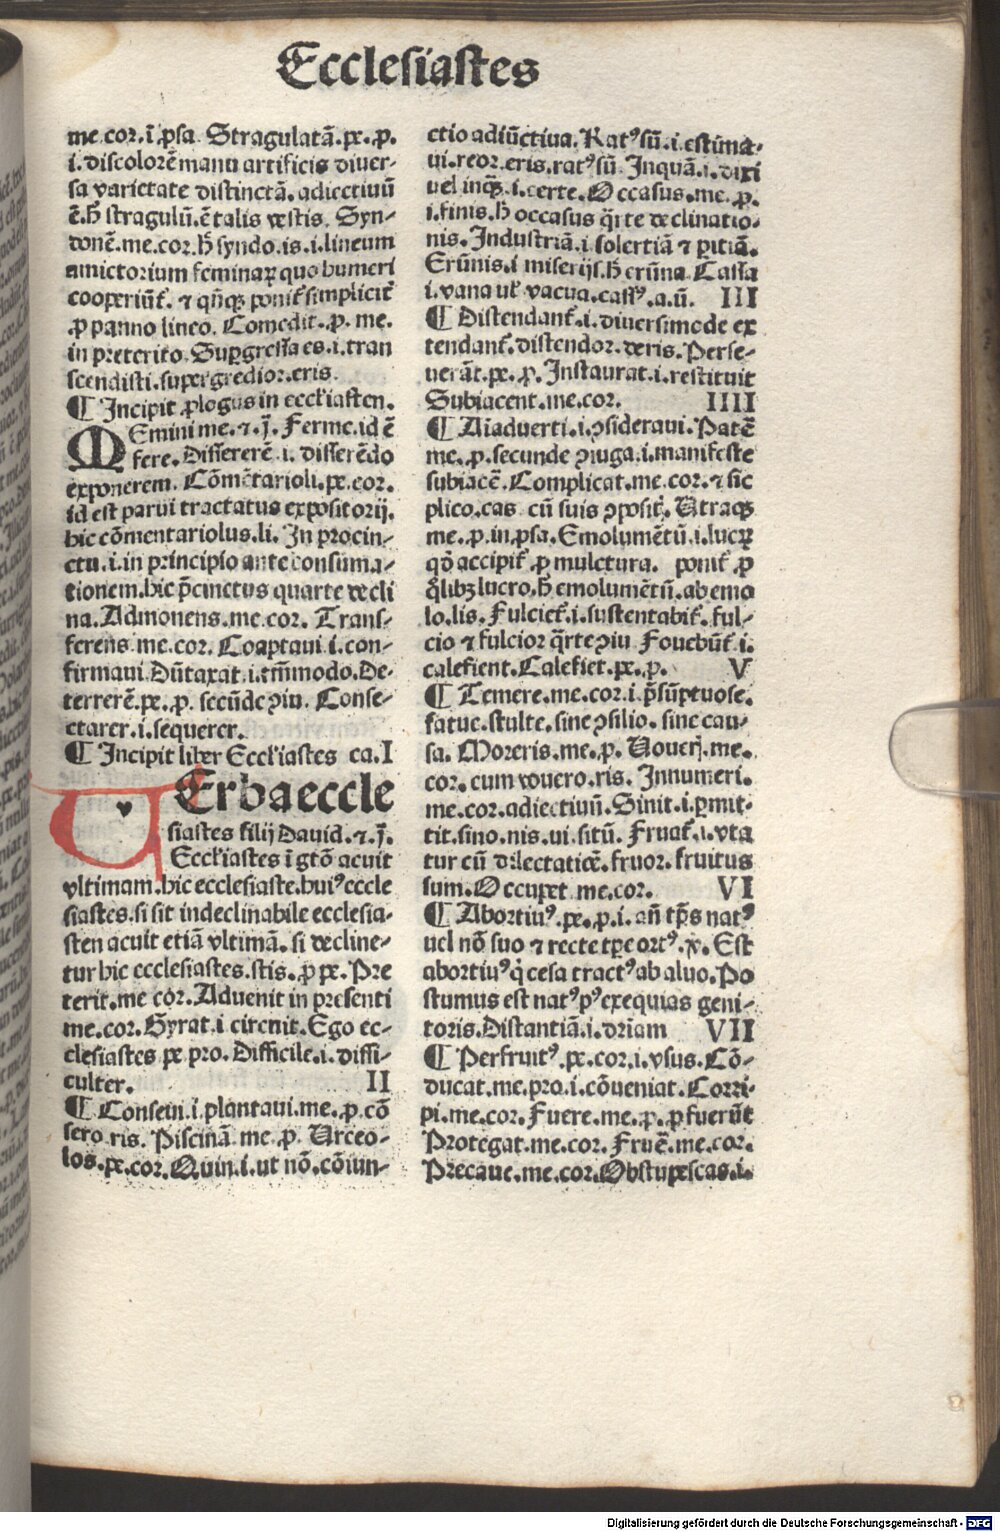 Ecclesiastes
me.cor.i̅.ꝓsa. Stragulatã.pe.p.
i.discolorẽ manu artificis diuer-
sa varietate distinctã.adiectiuũ
ẽ.h̃ stragulũ.ẽ talis vestis. Syn-
donẽ.me.cor.h̃ syndo.is.i.lineum
amictorium feminaꝝ quo humeri
cooperiũt̃. ⁊ qñqꝫ ponit̃ simplicit̃
ꝓ panno lineo. Comedit.p. me.
in preterito. Suꝑgressa es.i.tran
scendisti.supergredior.eris.
¶ Incipit ꝓlogus in eccl'iasten.
MEmini me.⁊.j̃. Ferme.id ẽ
fere. Dissererẽ.i. disserẽdo
exponerem. Cõmẽtarioli.pe.cor.
id est parui tractatus expositorij.
hic cõmentariolus.li. In procin-
ctu.i.in principio ante consuma-
tionem.hic p̃cinctus quarte decli
na. Admonens.me.cor. Trans-
ferens.me.cor. Coaptaui.i.con-
firmaui. Dũtaxat.i.tm̃modo. De-
terrerẽ.pe.p. secũde ꝯiu. Conse-
ctarer.i.sequerer.
¶ Incipit liber Eccl'iastes ca.I
VErba eccle
siastes filij Dauid.⁊.j̃.
Eccl'iastes i̅ gtõ acuit
vltimam.hic ecclesiaste.huiꝰ eccle
siastes.si sit indeclinabile ecclesia-
sten acuit etiã vltimã. si decline-
tur hic ecclesiastes.stis. ꝓ pe. Pre
terit.me cor. Aduenit in presenti
me.cor. Gyrat.i circuit. Ego ec-
clesiastes pe pro. Difficile.i.diffi-
culter. II
¶ Conseui.i.plantaui.me.p.cõ
sero.ris. Piscinã me.p. Urceo-
los.pe.cor. Quin.i.ut nõ.cõiun-
ctio adiũctiua. Ratꝰ sũ.i.estima-
ui.reor.eris.ratꝰ sũ. Inquã.i.dixi
uel inqꝫ.i.certe. Occasus.me.p.
i.finis.h̃ occasus q̃rte declinatio-
nis. Industriã.i.solertiã ⁊ ꝑitiã.
Erũnis.i miserijs.h̃ erũna. Cassa
i.vana ul' vacua.cassꝰ.a.ũ. III
¶ Distendant̃.i.diuersimode ex
tendant̃.distendor.deris. Perse-
uerãt.pe.p. Instaurat.i.restituit
Subiacent.me.cor. IIII
¶ Aiaduerti.i.ꝯsideraui. Patẽt
me.p.secunde ꝯiuga.i.manifeste
subiacẽt. Complicat.me.cor.⁊ sic
plico.cas cũ suis ꝯposit̃. Utraqꝫ
me.p.in.ꝓsa. Emolumẽtũ.i.lucꝝ
qõ accipit̃ ꝓ mulctura. ponit̃ ꝓ
q̃libꝫ lucro.h̃ emolumẽtũ.ab emo
lo.lis. Fulciet̃.i.sustentabit̃.ful-
cio ⁊ fulcior q̃rte ꝯiu Fouebũt̃ i.
calefient. Calefiet.pe.p. V
¶ Temere.me.cor.i p̃sũptuose.
fatue.stulte.sine ꝯsilio.sine cau-
sa. Moreris.me.p. Uoueri.me.
cor.cum voueo.ris. Innumeri.
me.cor.adiectiuũ. Sinit.i.ꝑmit-
tit.sino.nis.ui.sitũ. Fruat̃.i.vta
tur cũ dilectatiõe.fruor.fruitus
sum. Occupet me.cor. VI
¶ Abortiuꝰ.pe.p.i.añ tp̃s natꝰ
uel nõ suo ⁊ recte tꝑe ortꝰ.v̓. Est
abortiuꝰ q̃ cesa tractꝰ ab aluo. Po
stumus est natꝰ pꝰ exequias geni-
toris. Distantiã.i.driam VII
¶ Perfruitꝰ.pe.cor.i.vsus. Cõ-
ducat.me.pro.i.cõueniat. Corri-
pi.me.cor. Fuere.me.p.ꝓ fuerũt
Protegat.me.cor. Fruẽ.me.cor.
Precaue.me.cor. Obstupescas.i.
Digitalisierung gefördert durch die Deutsche Forschungsgemeinschaft - DFG